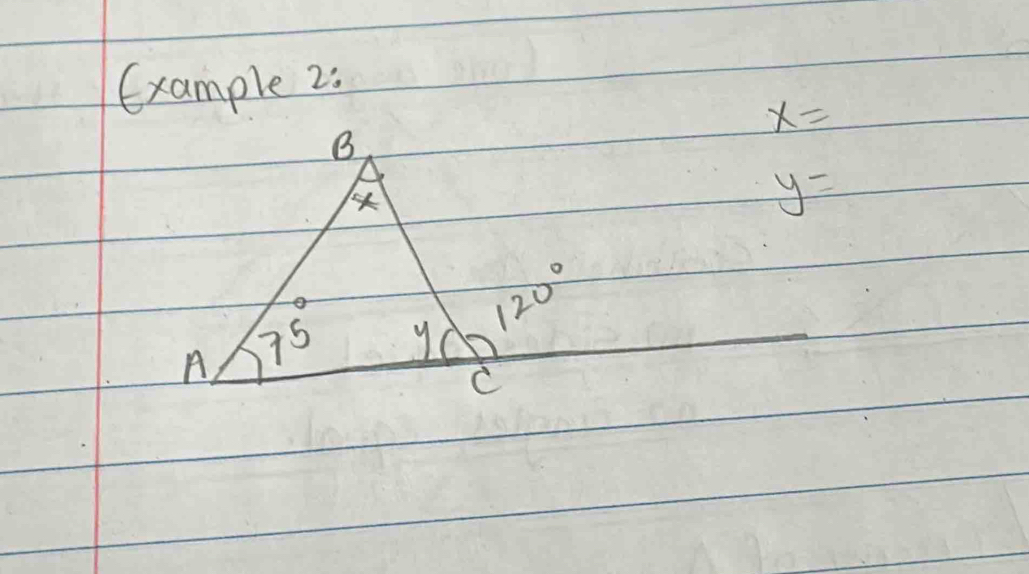 Example 2:
x=
y=
B
x
A 75° y 120°
C